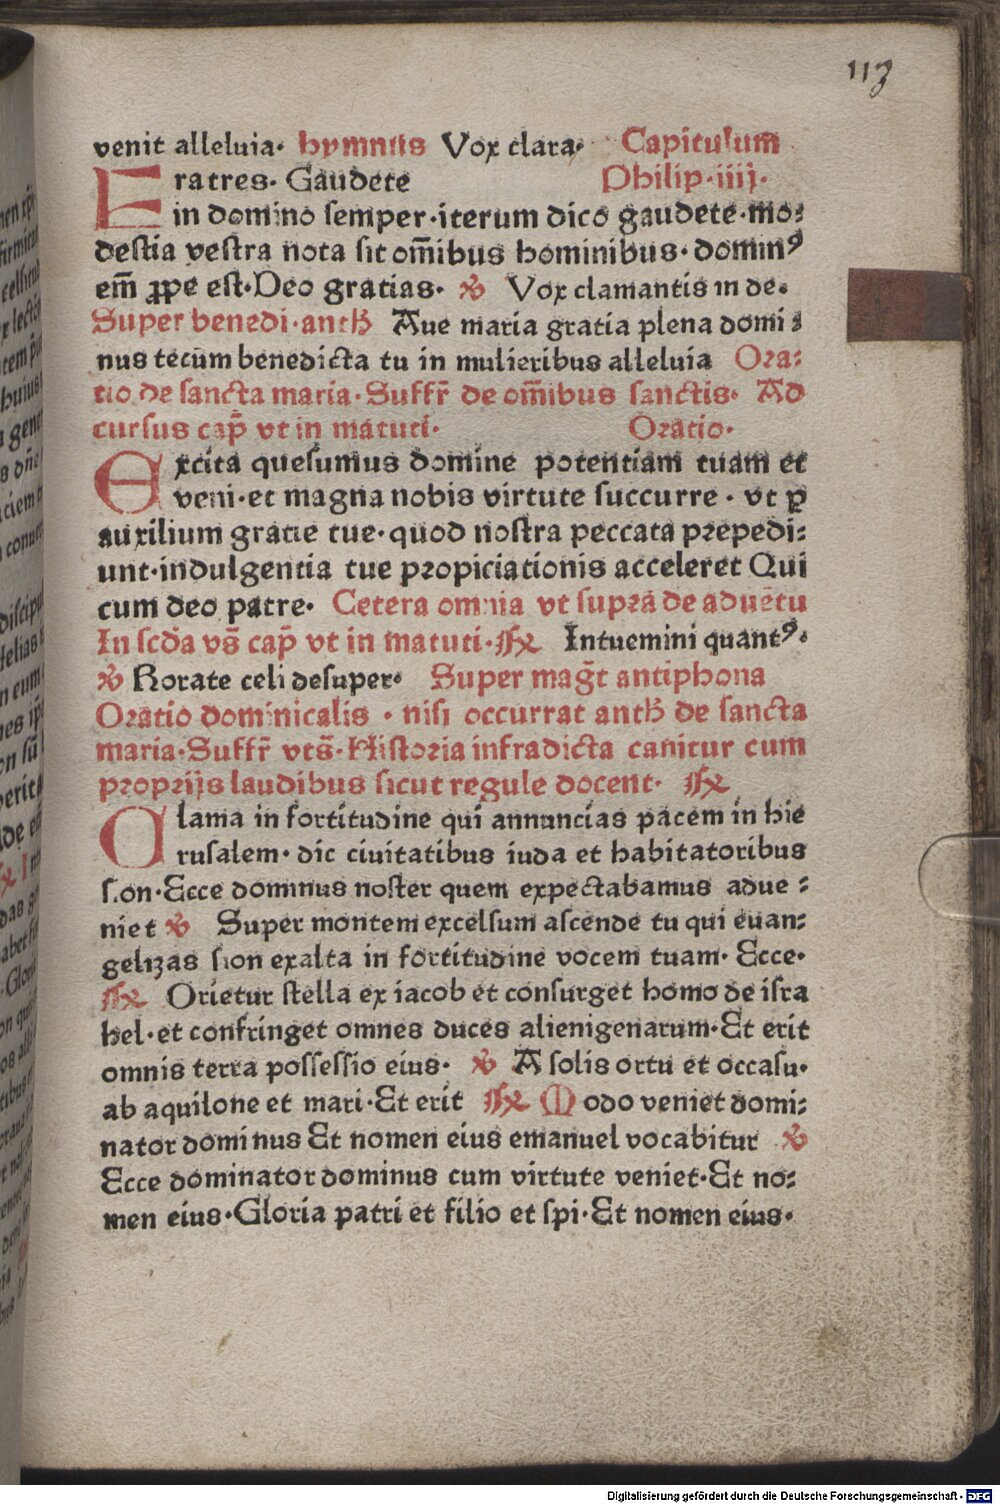 113
venit alleluia· hymnus Vox clara· Capitulum
Fratres· Gaudete Philip·iiij·
in domino semper·iterum dico gaudete·mo⸗
destia vestra nota sit om̄ibus hominibus· dominꝰ
em̄ ꝓpe est·Deo gratias· ℣ Vox clamantis in de·
Super benedi·anth̄ Aue maria gratia plena domi⸗
nus tecum benedicta tu in mulieribus alleluia Ora⸗
tio de sancta maria·Suffr̄ de om̄ibus sanctis· Ad
cursus cap̄ vt in matuti· Oratio·
Excita quesumus domine potentiam tuam et
veni·et magna nobis virtute succurre · vt ꝑ
auxilium gratie tue·quod nostra peccata prepedi⸗
unt·indulgentia tue propiciationis acceleret Qui
cum deo patre· Cetera omnia vt supra de aduētu
In scd̄a vs̄ cap̄ vt in matuti·℟ Intuemini quantꝰ·
℣ Rorate celi desuper· Super maḡt antiphona
Oratio dominicalis · nisi occurrat anth̄ de sancta
maria·Suffr̄ vts̄·Historia infradicta canitur cum
proprijs laudibus sicut regule docent· ℟
Clama in fortitudine qui annuncias pacem in hie
rusalem· dic ciuitatibus iuda et habitatoribus
sion·Ecce dominus noster quem expectabamus adue⸗
niet ℣ Super montem excelsum ascende tu qui euan⸗
gelizas sion exalta in fortitudine vocem tuam· Ecce·
℟ Orietur stella ex iacob et consurget homo de isra
hel·et confringet omnes duces alienigenarum·Et erit
omnis terra possessio eius· ℣ A solis ortu et occasu·
ab aquilone et mari·Et erit ℟ Modo veniet domi⸗
nator dominus Et nomen eius emanuel vocabitur ℣
Ecce dominator dominus cum virtute veniet·Et no⸗
men eius·Gloria patri et filio et spi·Et nomen eius·
Digitalisierung gefördert durch die Deutsche Forschungsgemeinschaft - DFG